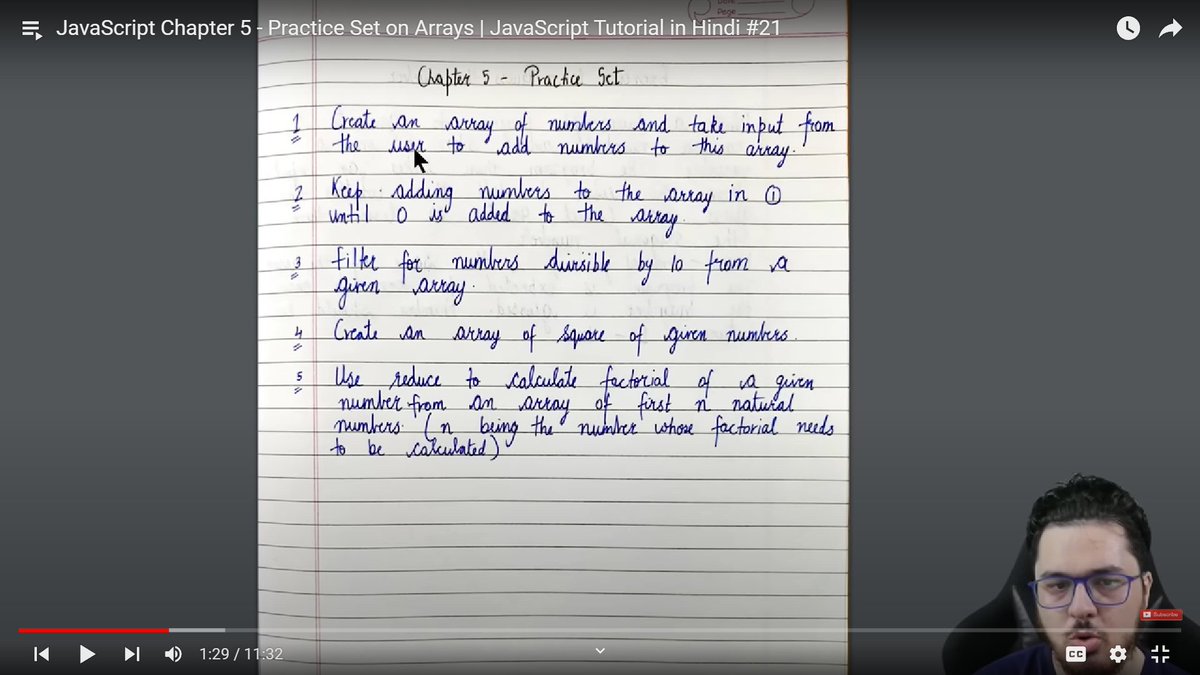 JavaScript Chapter 5 - Practice Set on Arrays | JavaScript Tutorial in Hindi #21
Page
Chapter 5 - Practice Set
1 Create an array of numbers and take input from
the user to add numbers to this array.
2 Keep adding numbers to the array in ①
until 0 is added to the array.
3 filter for numbers divisible by 10 from a
given array.
4 Create an array of square of given numbers.
5 Use reduce to calculate factorial of a given
number from an array of first n natural
numbers. (n being the number whose factorial needs
to be calculated)
Subscribe
1:29 / 11:32
CC